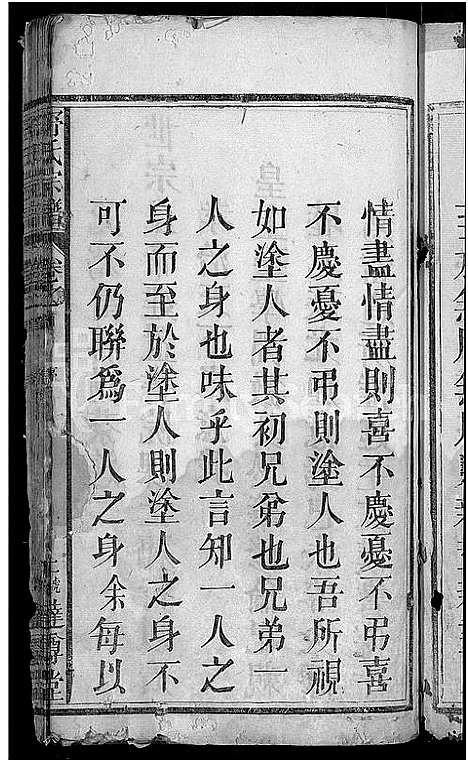 情盡情盡則喜不慶憂不弔喜
不慶憂不弔則塗人也吾所視
如塗人者其初兄弟也兄弟一
人之身也味乎此言知一人之
身而至於塗人則塗人之身不
可不仍聯爲一人之身余每以
氏宗譜